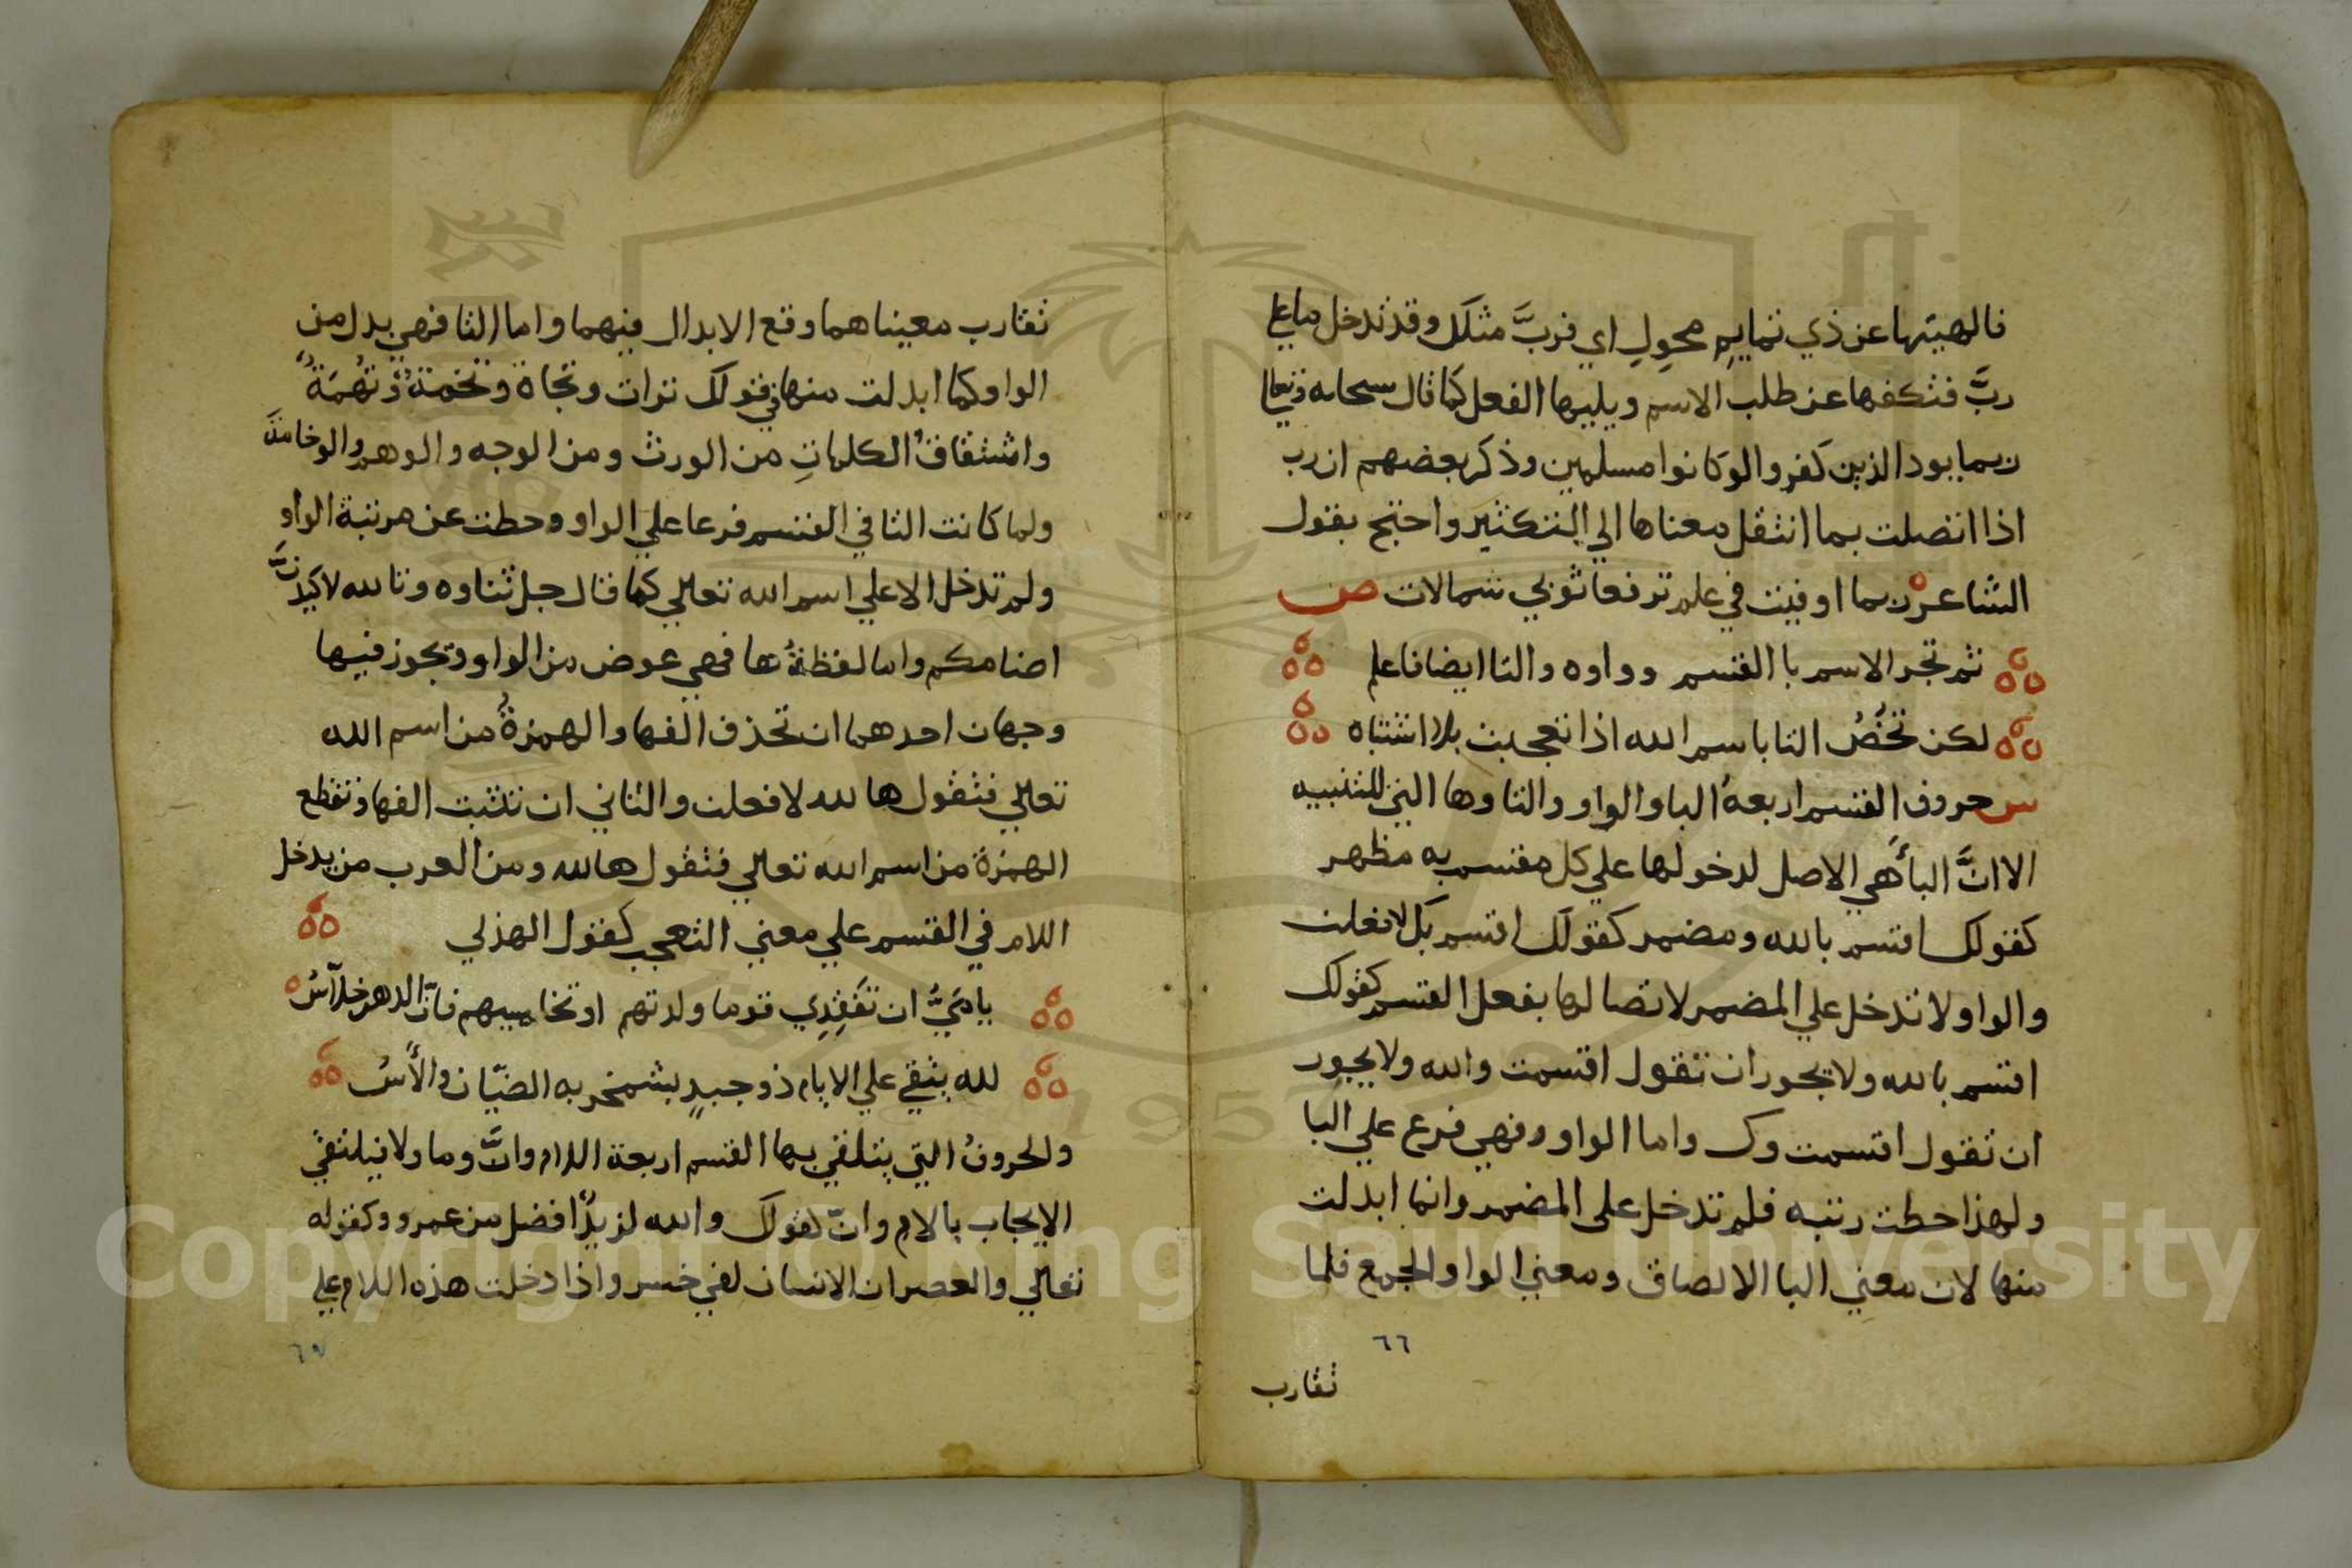 فالهيتها عن ذي تمايم محول اي فربَّ مثلك وقد تدخل ما علي
ربَّ فتكفها عن طلب الاسم ويليها الفعل كما قال سبحانه وتعالي
ربما يود الذين كفروا لو كانوا مسلمين وذكر بعضهم ان رب
اذا اتصلت بما انتقل معناها الي التكثير واحتج بقول
الشاعر ربما اوفيت في علم ترفعا ثوبي شمالات ص
ثم تجر الاسم با القسم وواوه والتا ايضا فاعلم
لكن تخصُ التا باسم الله اذا تعجبت بلا اشتباه
س حروف القسم اربعةُ البا والواو والتا وها التي للتنبيه
الا انَّ البأ هي الاصل لدخولها علي كل مقسم به مظهر
كقولك اقسم بالله ومضمر كقولك اقسم بك لافعلن
والواو لا تدخل علي المضمر لاتصالها بفعل القسم كقولك
اقسم بالله ولا يجوز ان تقول اقسمت والله ولا يجوز
ان تقول اقسمت وك واما الواو فهي فرع علي البا
ولهذا حطت رتبه فلم تدخل علي المضمر وانما ابدلت
منها لان معني البا الالصاق ومعني الواو الجمع فلما
٦٦
تقارب
تقارب معيناهما وقع الابدال فيهما واما التا فهي بدل من
الواو كما ابدلت منها في قولك تراث وتجاة وتخمةٌ وتهُمَةٌ
واشتقاقُ الكلماتِ من الورث ومن الوجه والوهم والوخامة
ولما كانت التا في القسم فرعا علي الواو وحطت عن مرتبة الواو
ولم تدخل الا علي اسم الله تعالي كما قال جل ثناوه وتالله لاكيدنَّ
اصنامكم واما لفظةُ ها فهي عوض من الواو ويجوز فيها
وجهان احدهما ان تحذف الفها والهمزةُ من اسم الله
تعالي فتقول ها لله لافعلن والثاني ان تثبت الفها وتقطع
الهمزة من اسم الله تعالي فتقول ها الله ومن العرب من يدخل
اللام في القسم علي معني التعجب كقول الهذلي
يا ميَّ ان تفقدي قوما ولدتهم او تخلسيهم فانّ الدهر خلّاسُ
لله يبقي علي الايام ذو حيدٍ بشمخر به الضيّان والأسُ
والحروفُ التي يتلقي بها القسم اربعة اللام وانَّ وما ولا فيلتقي
الايجاب بالام وانّ كقولك والله لزيدٌ افضل من عمرو وكقوله
تعالي والعصر ان الانسان لفي خسر واذا دخلت هذه اللام علي
٦٧
Copyright © King Saud University
1957